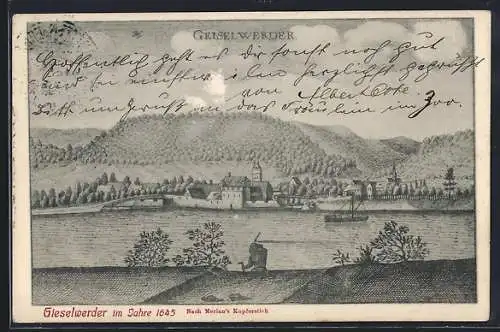 GEISELWERDER
Hoffentlich geht es dir sonst noch gut
und sei einstweilen herzlichst gegrüsst
von Albert
Bitte um Gruss an das Fräulein im Zoo.
Gieselwerder im Jahre 1645 Nach Merian's Kupferstich